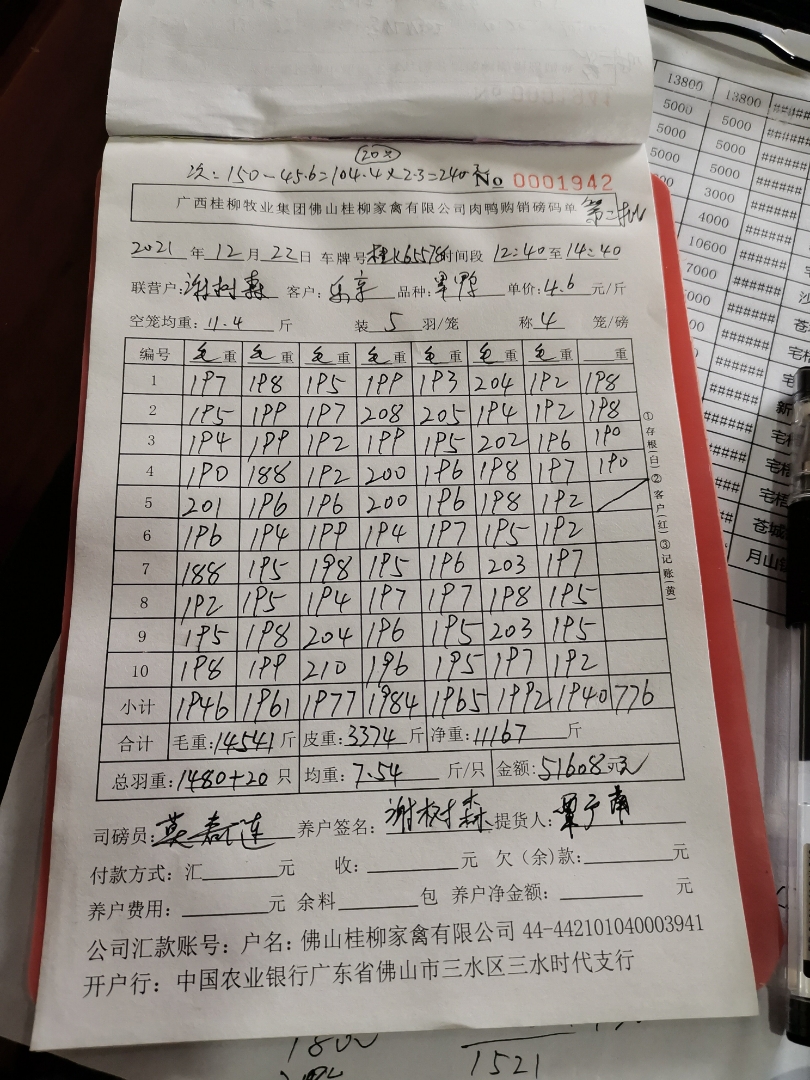 20只
次:150-45.6=104.4×2.3=240元
№ 0001942
广西桂柳牧业集团佛山桂柳家禽有限公司肉鸭购销磅码单 第二批
2021年12月22日 车牌号桂K65578时间段12:40至14:40
联营户:谢树森 客户:乐亲 品种:单鸭 单价:4.6元/斤
空笼均重:11.4斤 装5羽/笼 称4笼/磅
编号 毛重 毛重 毛重 毛重 毛重 毛重 毛重 重
1 197 198 195 199 193 204 192 198
2 195 199 197 208 205 194 192 198
3 194 199 192 199 195 202 196 190
4 190 188 192 200 196 198 197 190
5 201 196 196 200 196 198 192
6 196 194 199 194 197 195 192
7 188 195 198 195 196 203 197
8 192 195 194 197 197 198 195
9 195 198 204 196 195 203 195
10 198 199 210 196 195 197 192
小计 1946 1961 1977 1984 1965 1992 1940 776
合计 毛重:14541斤 皮重:3374斤 净重:11167斤
总羽重:1480+20只 均重:7.54斤/只 金额:51608元
司磅员: 养户签名:谢树森 提货人:覃宁南
付款方式:汇 元 收: 元 欠(余)款: 元
养户费用: 元 余料 包 养户净金额: 元
公司汇款账号:户名:佛山桂柳家禽有限公司 44-442101040003941
开户行:中国农业银行广东省佛山市三水区三水时代支行
①存根(白)②客户(红)③记账(黄)
13800 13800 ######
5000 5000 ######
5000 5000 ######
5000 5000 ######
3000
4000
10600
7000
1800
1521